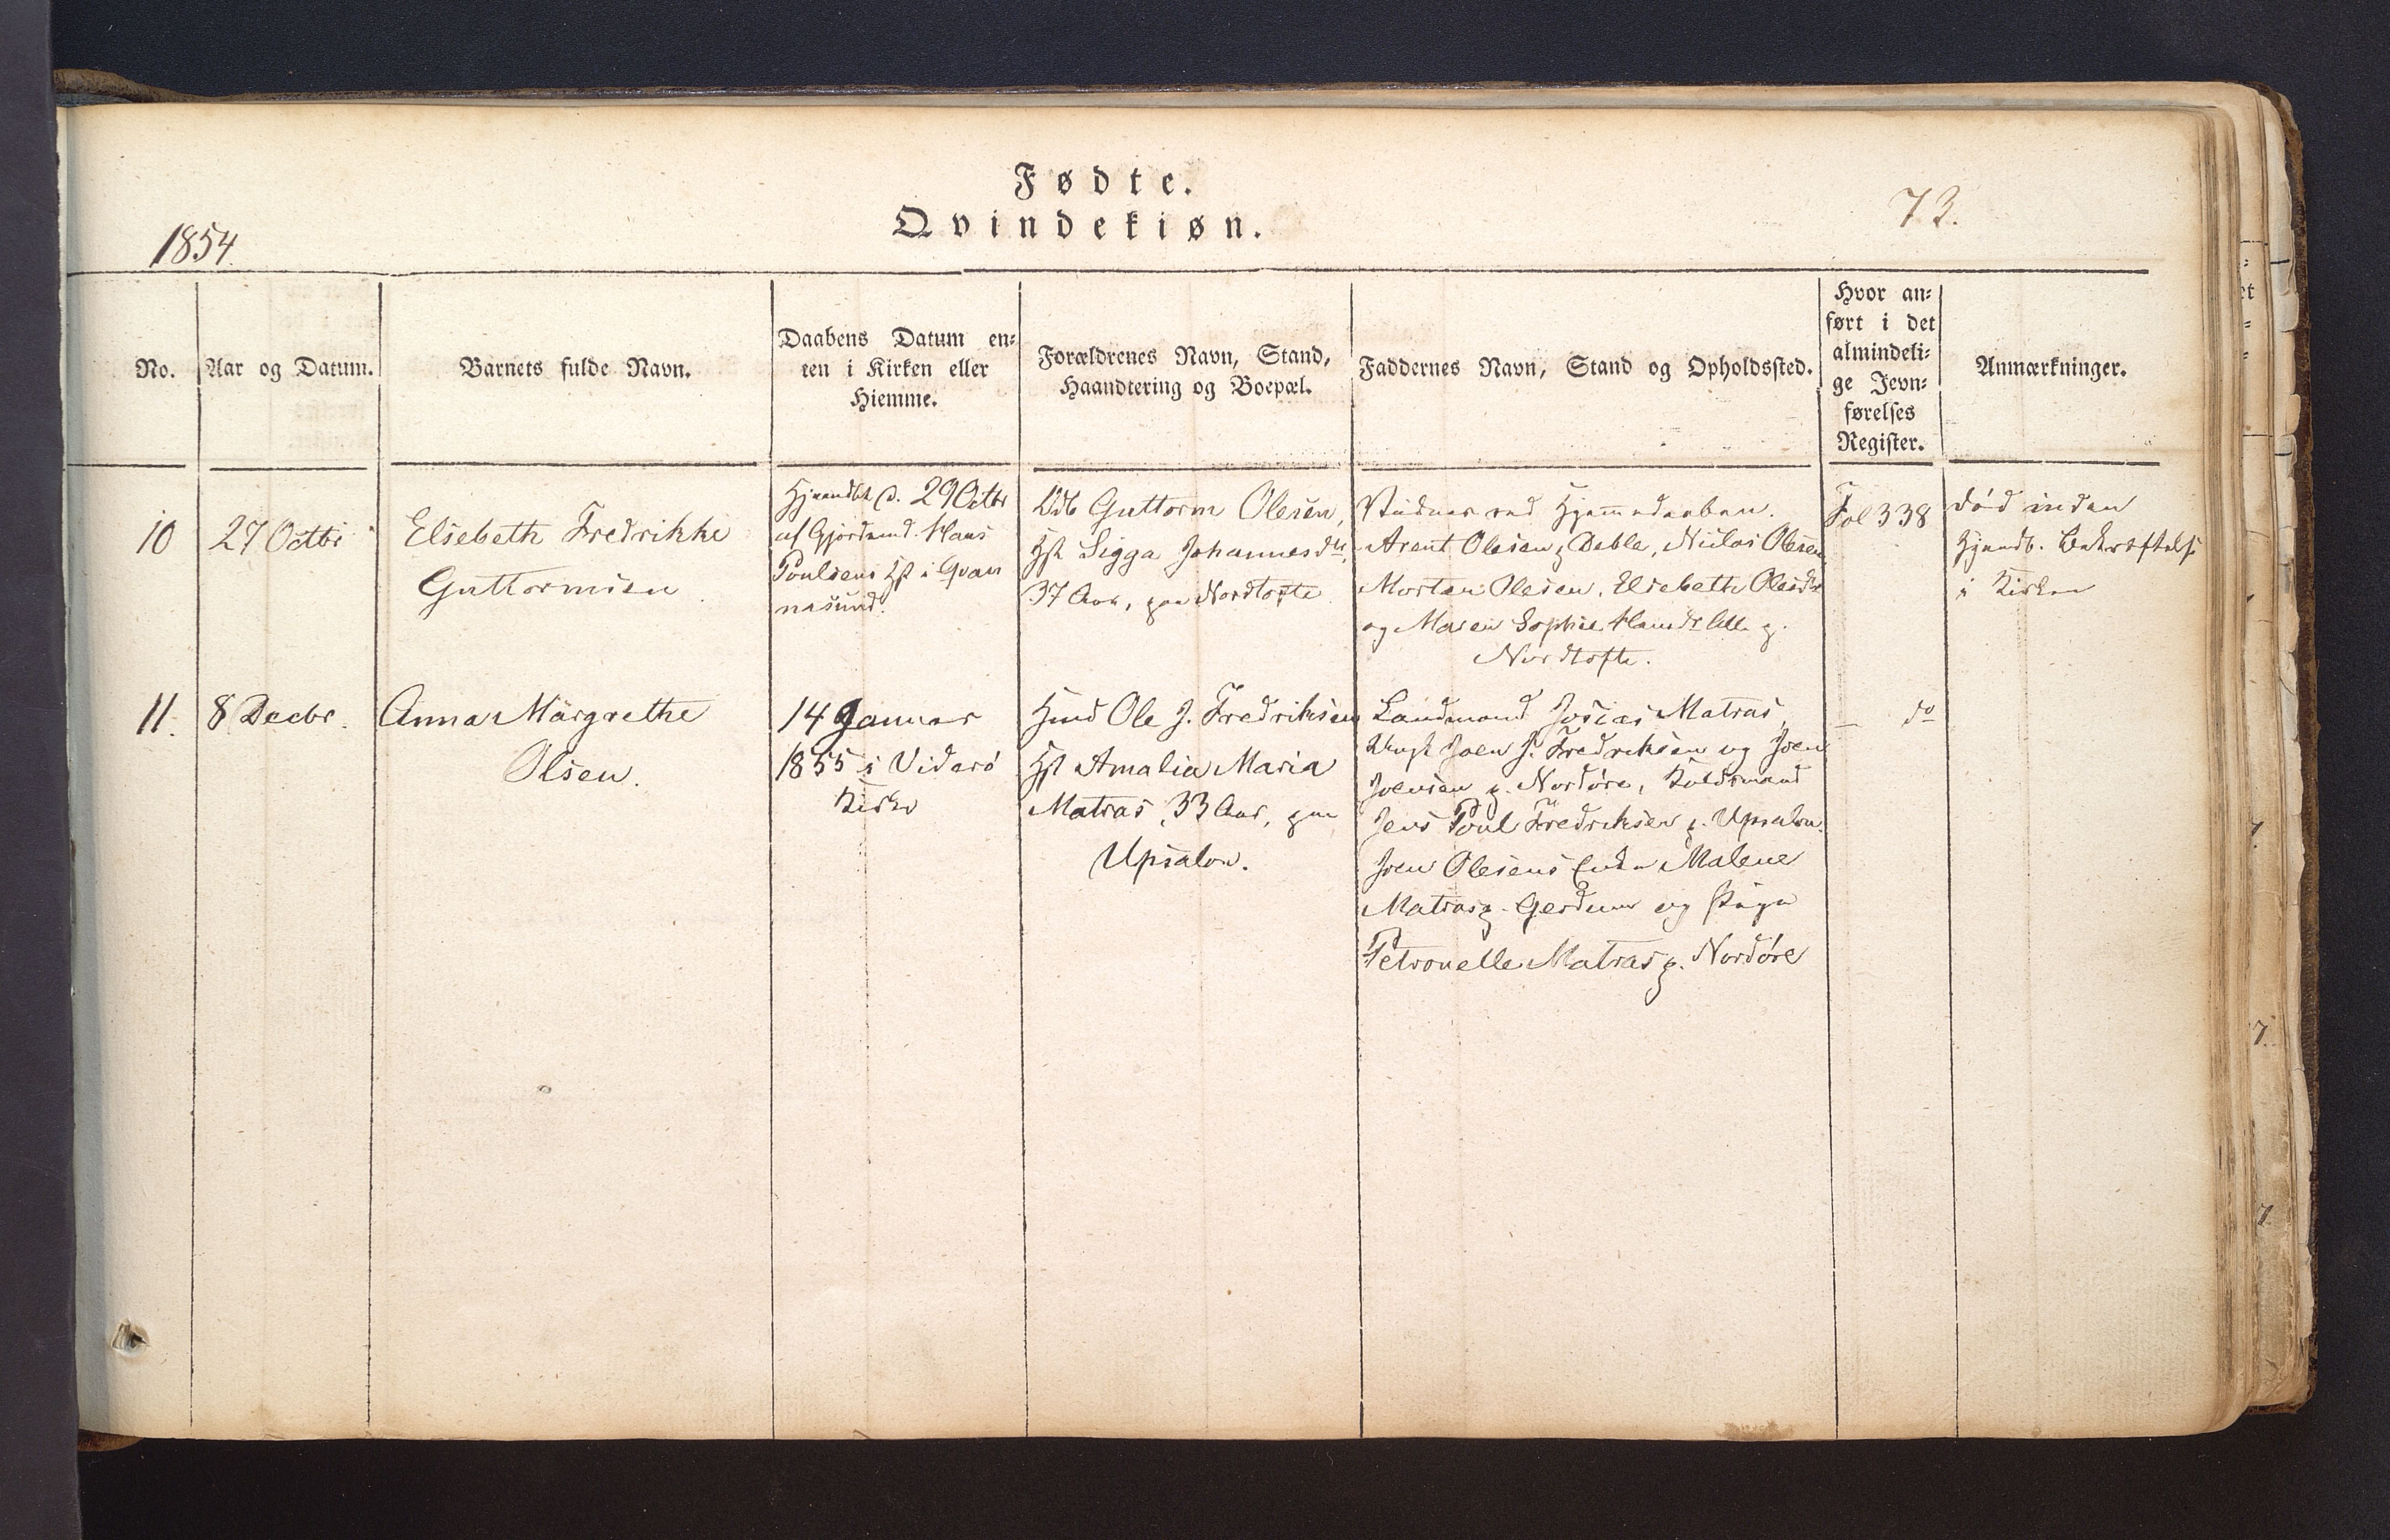 Fødte.
Qvindekiøn.
1854.
73.
No.
Aar og Datum.
Barnets fulde Navn.
Daabens Datum en-
ten i Kirken eller
Hiemme.
Forældrenes Navn, Stand,
Haandtering og Boepæl.
Faddernes Navn, Stand og Opholdssted.
Hvor an-
ført i det
almindeli-
ge Jevn-
førelses
Register.
Anmærkninger.
10
27 Octbr
Elsebeth Fredrikke
Guttormsen
Hjemdbt d. 29 Octbr
af Gjordemd. Hans
Poulsens Hst i Qvan
nasund.
Guttorm Olesen,
Hst Sigga Johannesdtr,
37 Aar, paa Nordtofte
Vidner ved Hjemmedaaben.
Arent Olesen, Deble, Niclas Olesen
Morten Olesen, Elsebeth Olesdtr
og Maren Sophie Hansdr alle p.
Nordtofte.
Fol 338
død inden
Hjemdb. Bekræftelse
i Kirken
11.
8 Decbr.
Anna Margrethe
Olsen.
14 Januar
1855 i Viderø
Kirke
Hmd Ole J. Fredriksen
Hst Amalia Maria
Matras, 33 Aar, paa
Upsalon.
Landmand Josias Matras,
Joen J. Fredriksen og Joen
Joensen p. Nordøre,
Jens Poul Fredriksen p. Upsalon.
Joen Olesens Enke Malene
Matras p. Gerdum og Pige
Petronelle Matras p. Nordøre
— do